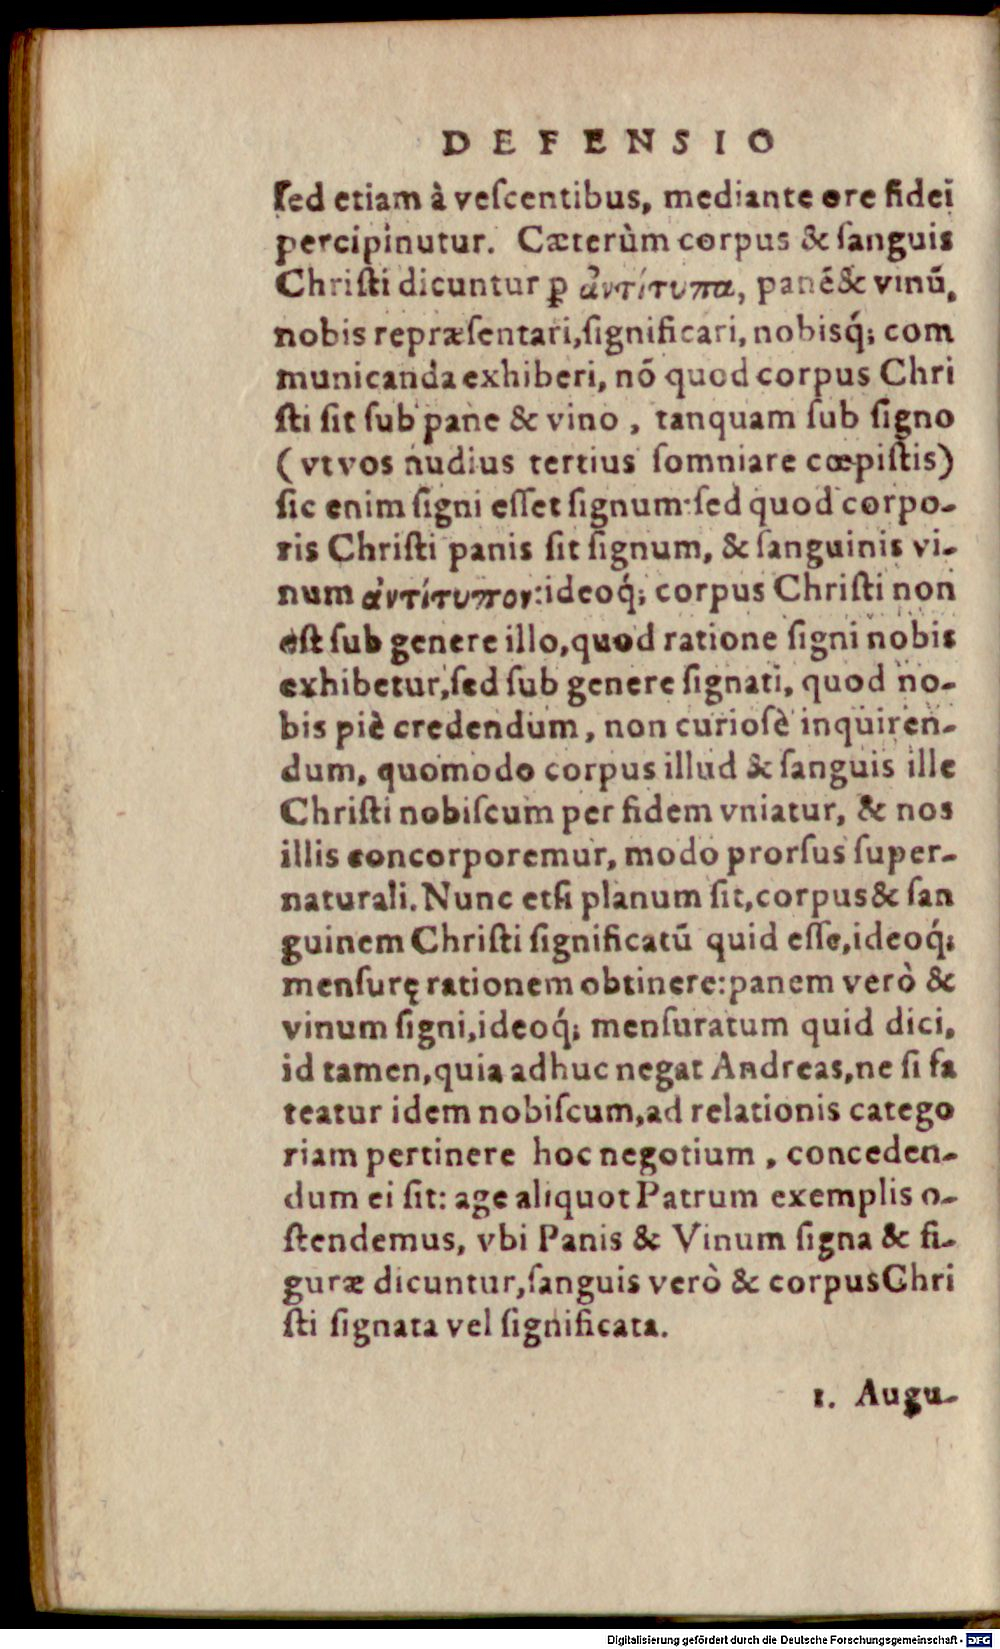 DEFENSIO
ſed etiam à veſcentibus, mediante ore fidei
percipinutur. Cæterùm corpus & ſanguis
Chriſti dicuntur ꝑ ἀντίτυπα, panē & vinū,
nobis repræſentari, ſignificari, nobisq́; com
municanda exhiberi, nō quod corpus Chri
ſti ſit ſub pane & vino, tanquam ſub ſigno
(vt vos nudius tertius ſomniare cœpiſtis)
ſic enim ſigni eſſet ſignum: ſed quod corpo-
ris Chriſti panis ſit ſignum, & ſanguinis vi-
num ἀντίτυπον: ideoq́; corpus Chriſti non
eſt ſub genere illo, quod ratione ſigni nobis
exhibetur, ſed ſub genere ſignati, quod no-
bis piè credendum, non curioſè inquiren-
dum, quomodo corpus illud & ſanguis ille
Chriſti nobiſcum per fidem vniatur, & nos
illis concorporemur, modo prorſus ſuper-
naturali. Nunc etſi planum ſit, corpus & ſan
guinem Chriſti ſignificatū quid eſſe, ideoq́;
menſurę rationem obtinere: panem verò &
vinum ſigni, ideoq́; menſuratum quid dici,
id tamen, quia adhuc negat Andreas, ne ſi fa
teatur idem nobiſcum, ad relationis catego
riam pertinere hoc negotium, conceden-
dum ei ſit: age aliquot Patrum exemplis o-
ſtendemus, vbi Panis & Vinum ſigna & fi-
guræ dicuntur, ſanguis verò & corpus Chri
ſti ſignata vel ſignificata.
1. Augu-
Digitalisierung gefördert durch die Deutsche Forschungsgemeinschaft - DFG